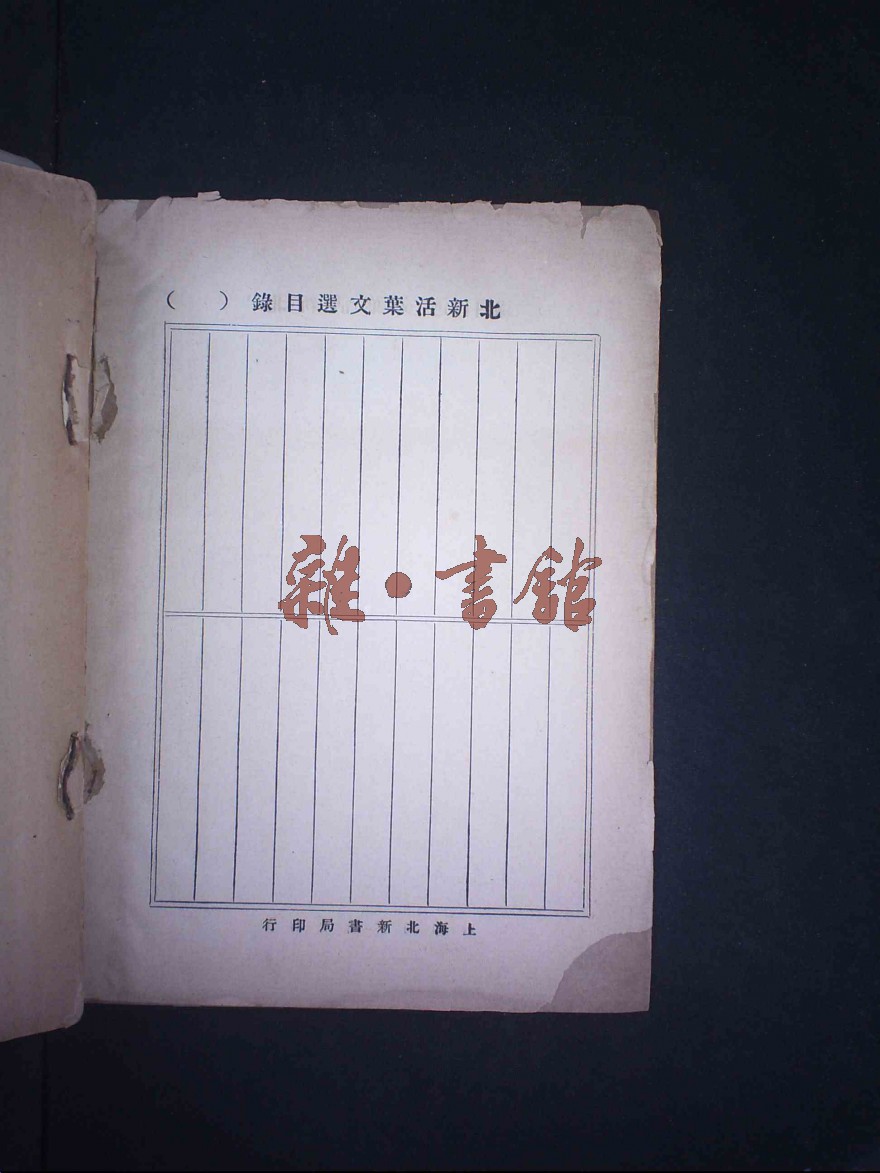 北新活葉文選目錄（　）
雜·書館
上海北新書局印行